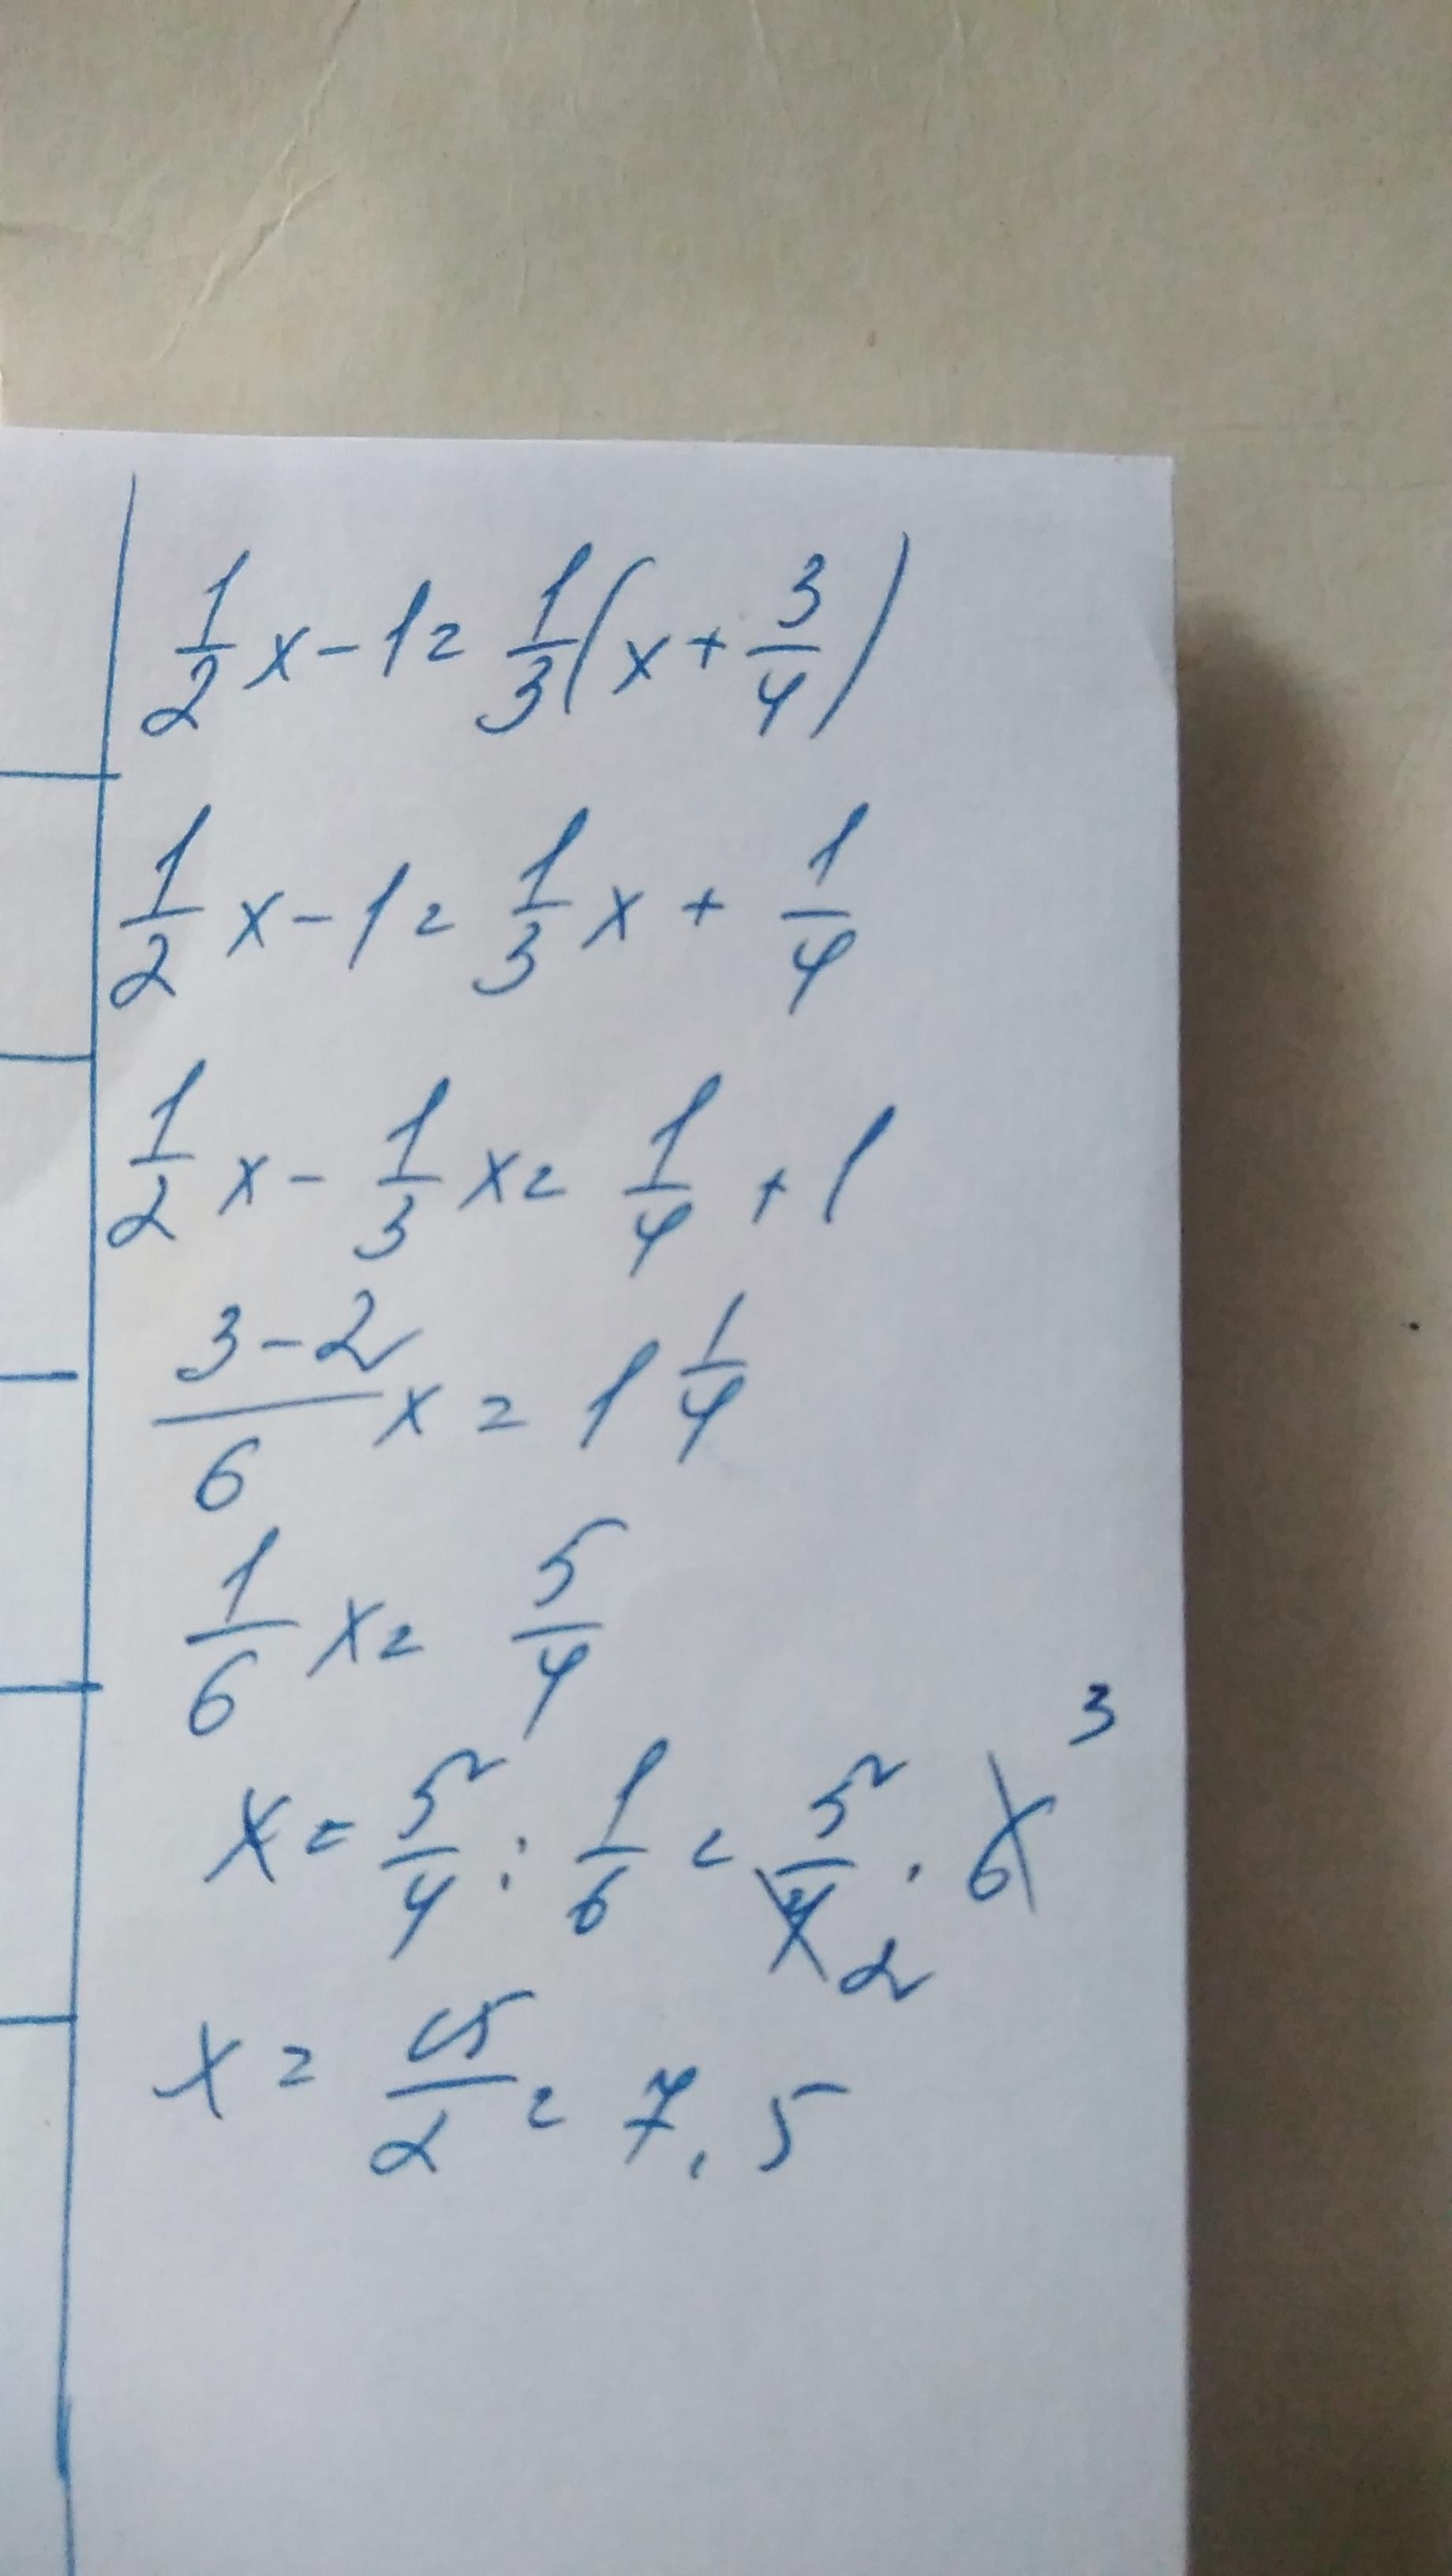 1/2 x - 1 = 1/3 (x + 3/4)
1/2 x - 1 = 1/3 x + 1/4
1/2 x - 1/3 x = 1/4 + 1
3-2/6 x = 1 1/4
1/6 x = 5/4
x = 5/4 : 1/6 = 5/4 2 · 6 3
x = 15/2 = 7,5